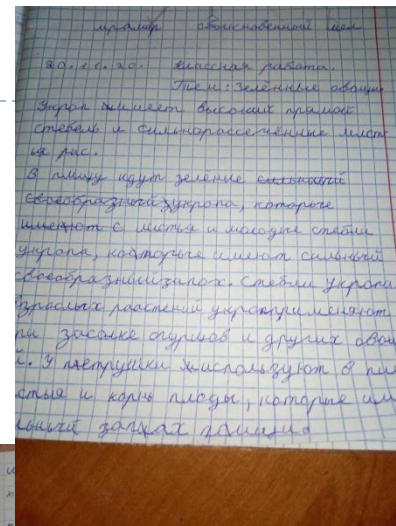 мрамор обыкновенный мел
20.11.20. классная работа.
Тем: зелённые овощи
Укроп имеет высокий прямой
стебель и сильнорассечённые листь
ья рис.
В пищу идут зелене сильный
своеобразный укропа, которые
имеют с листья и молодые стебли
укропа, которые имеют сильный
своеобразный запох. Стебли укропа
взрослых раастений укропприменяют
ри засолке огурцов и других овощ
й. У петрушки используют в пи
стья и корнь плоды, которые им
льный запах